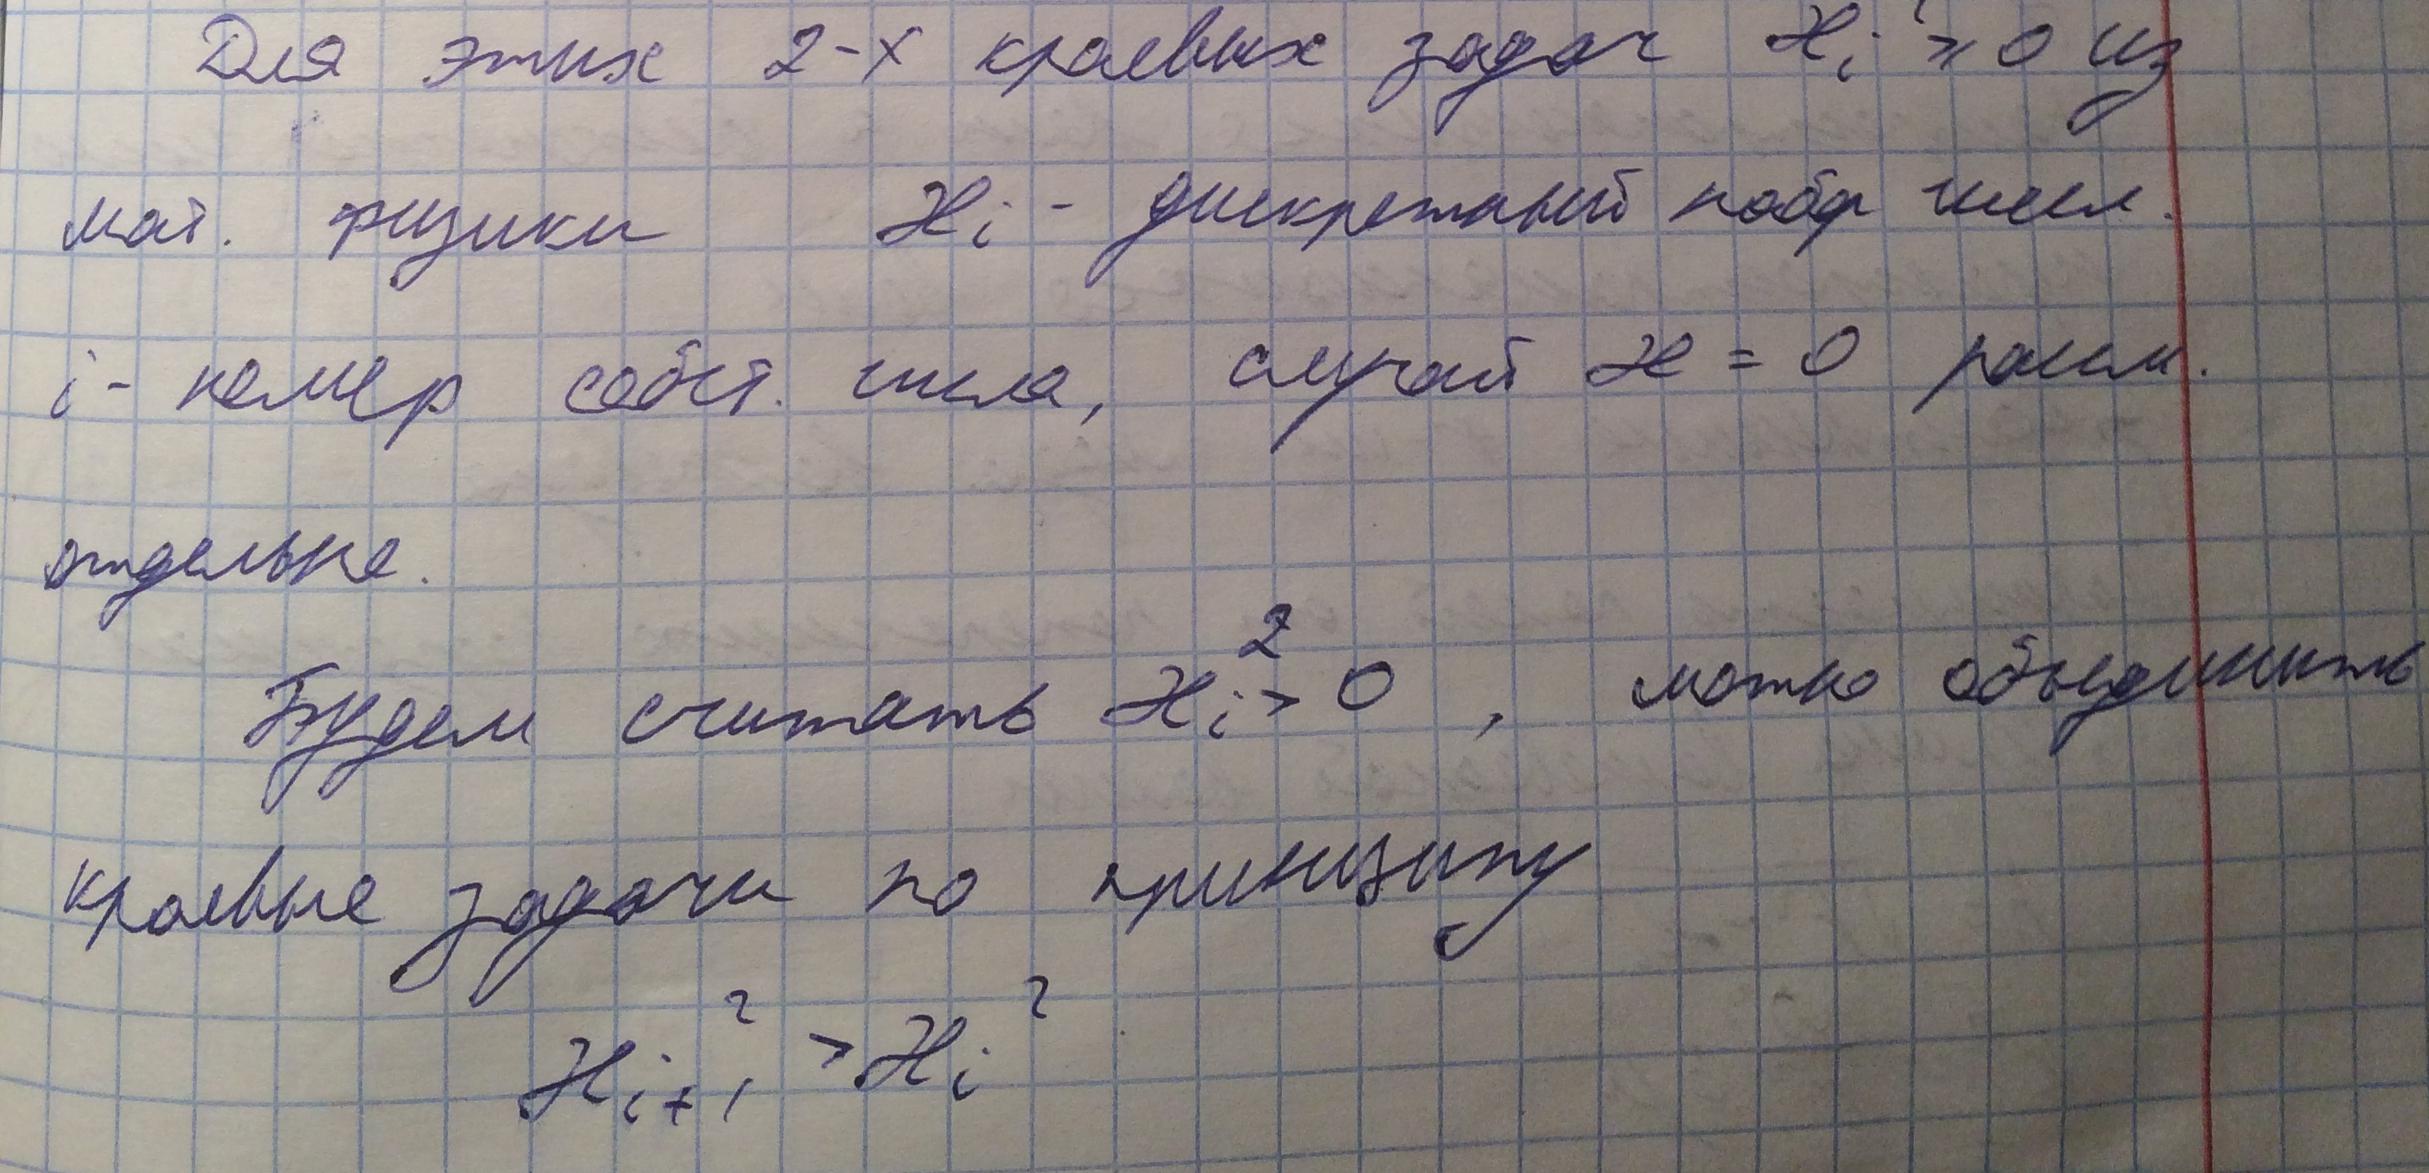 Для этих 2-х краевых задач ϰᵢ² ⩾ 0 из
мат. физики ϰᵢ - дискретный набор чисел.
i - номер собст. числа, случай ϰ = 0 рассм.
отдельно.
Будем считать ϰᵢ² > 0, можно объединить
краевые задачи по принципу
ϰᵢ₊₁² > ϰᵢ²